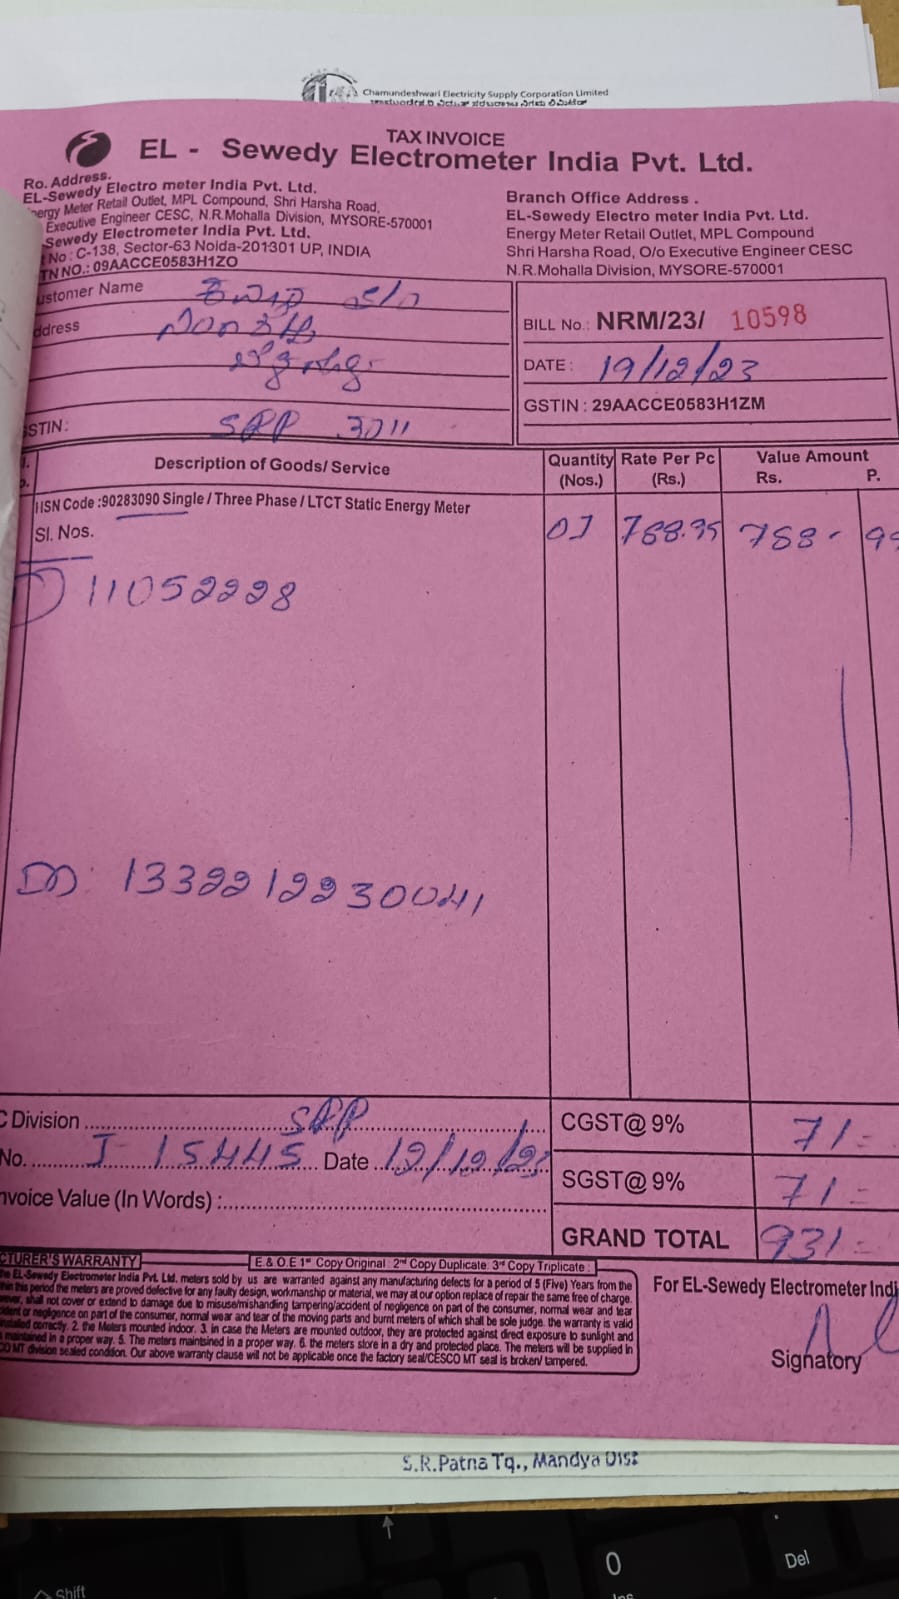 Chamundeshwari Electricity Supply Corporation Limited
TAX INVOICE
EL - Sewedy Electrometer India Pvt. Ltd.
Ro. Address.
EL-Sewedy Electro meter India Pvt. Ltd.
nergy Meter Retail Outlet, MPL Compound, Shri Harsha Road,
Executive Engineer CESC, N.R.Mohalla Division, MYSORE-570001
Sewedy Electrometer India Pvt. Ltd.
No : C-138, Sector-63 Noida-201301 UP, INDIA
TN NO.: 09AACCE0583H1ZO
Branch Office Address .
EL-Sewedy Electro meter India Pvt. Ltd.
Energy Meter Retail Outlet, MPL Compound
Shri Harsha Road, O/o Executive Engineer CESC
N.R.Mohalla Division, MYSORE-570001
ustomer Name
ddress
STIN: SRP 3011
BILL No.: NRM/23/ 10598
DATE: 19/12/23
GSTIN : 29AACCE0583H1ZM
Description of Goods/ Service Quantity (Nos.) Rate Per Pc (Rs.) Value Amount Rs. P.
HSN Code :90283090 Single / Three Phase / LTCT Static Energy Meter
Sl. Nos. 01
1) 11052228
DD: 1332212230041
C Division SRP
No. I- 15445 Date 19/12/23
nvoice Value (In Words) :
CGST@ 9% 71=
SGST@ 9% 71=
GRAND TOTAL 931=
CTURER'S WARRANTY
E & O.E 1st Copy Original 2nd Copy Duplicate. 3rd Copy Triplicate :
he EL-Sewedy Electrometer India Pvt. Ltd. meters sold by us are warranted against any manufacturing defects for a period of 5 (Five) Years from the
hen this period the meters are proved defective for any faulty design, workmanship or material, we may at our option replace of repair the same free of charge.
wever, shall not cover or extend to damage due to misuse/mishandling tampering/accident of negligence on part of the consumer, normal wear and tear
dent or negligence on part of the consumer, normal wear and tear of the moving parts and burnt meters of which shall be sole judge. the warranty is valid
installed correctly. 2. the Meters mounted indoor. 3. in case the Meters are mounted outdoor, they are protected against direct exposure to sunlight and
maintained in a proper way. 5. The meters maintsined in a proper way. 6. the meters store in a dry and protected place. The meters will be supplied in
CO MT division sealed condition. Our above warranty clause will not be applicable once the factory seal/CESCO MT seal is broken/ tampered.
For EL-Sewedy Electrometer Indi
Signatory
S.R.Patna Tq., Mandya Dist
0
Del
Ins
Shift